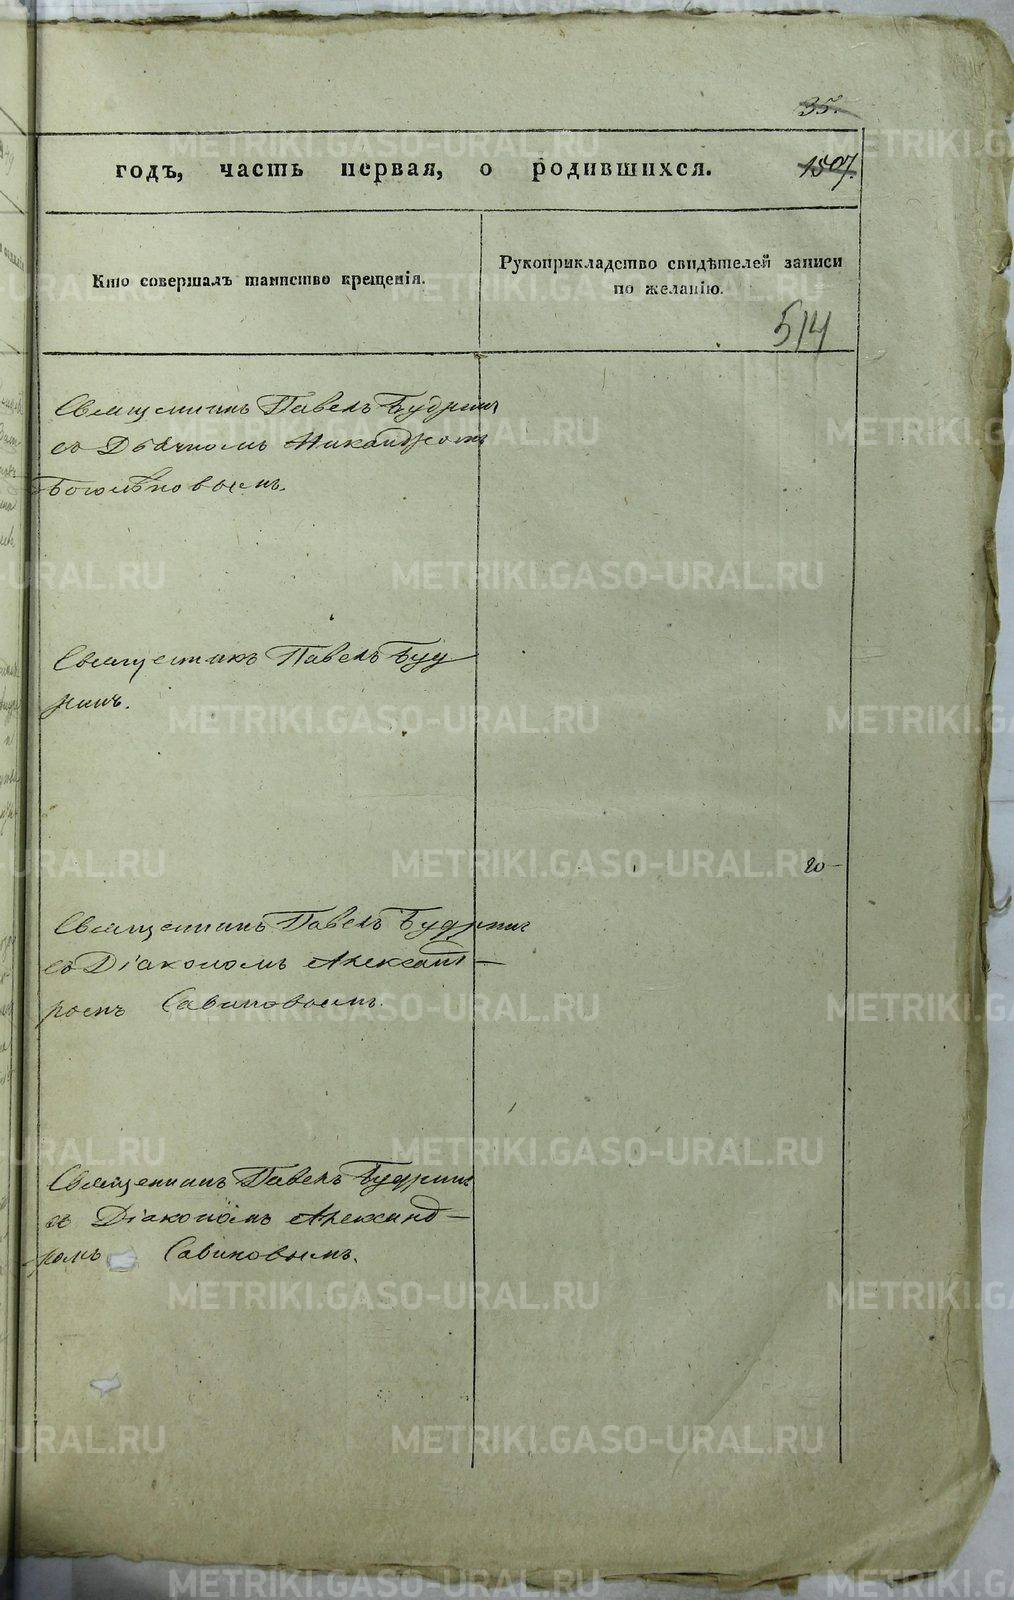 35.
годъ, часть первая, о родившихся.
1507.
Кто совершалъ таинство крещенія.
Рукоприкладство свидѣтелей записи
по желанію.
514
Священникъ Павелъ Будринъ
съ Дьячкомъ Никандромъ
Священникъ Павелъ Буд
ринъ.
20
Священникъ Павелъ Будринъ
съ Діакономъ Александ
ромъ Савиновымъ.
Священникъ Павелъ Будринъ
съ Діакономъ Александ
ромъ Савиновымъ.
METRIKI.GASO-URAL.RU